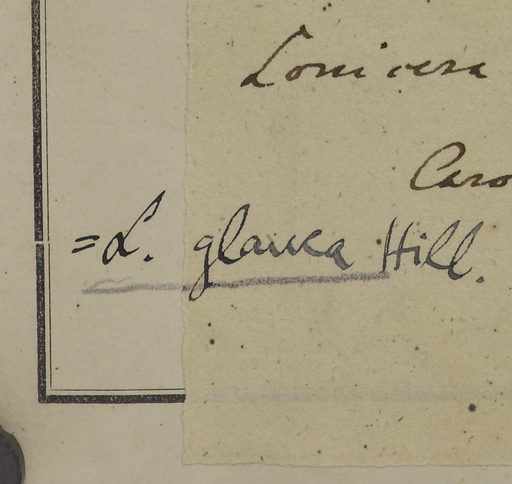 Lonicera
Caro
= L. glauca Hill.